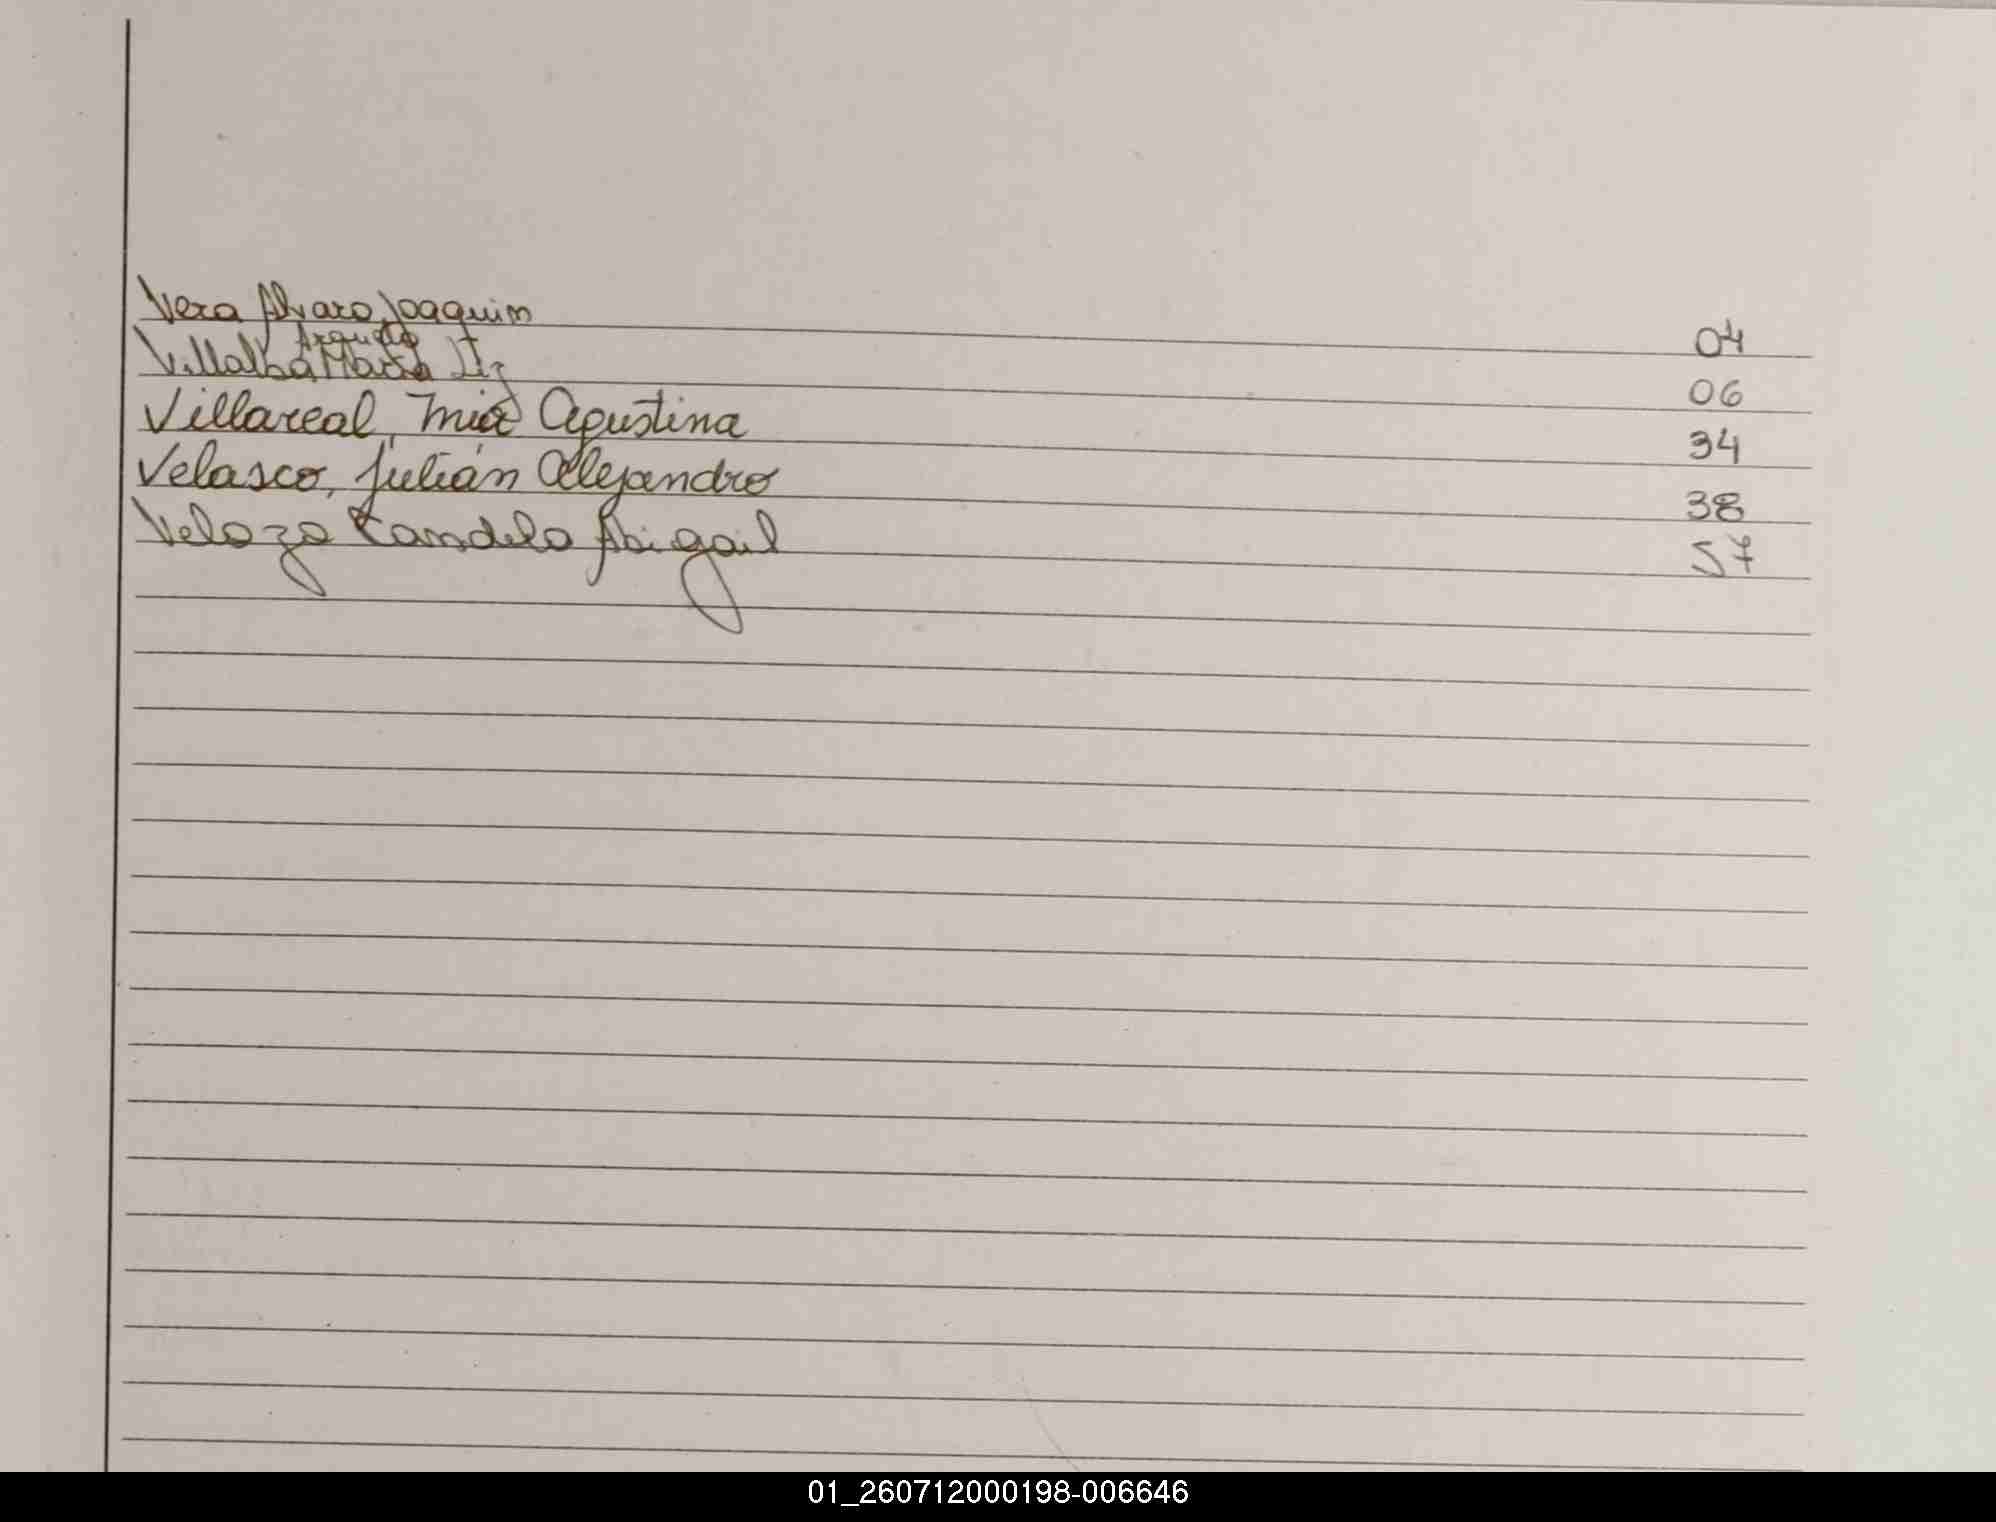 Vera Alvaro Joaquin 04
Arguello
Villalba Maria Liz 06
Villareal, Mia Agustina 34
Velasco, Julián Alejandro 38
Velozo Candela Abigail 57
01_260712000198-006646